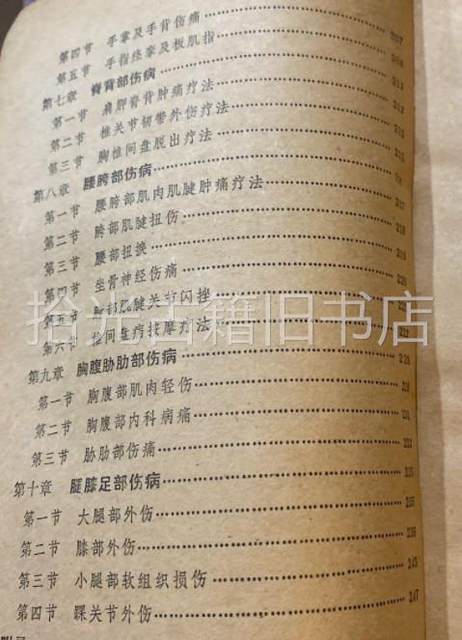 第四节 手掌及手背伤痛 207
第五节 手指痉挛及板机指
第七章 脊背部伤病 211
第一节 肩胛脊背肿痛疗法
第二节 椎关节韧带外伤疗法
第三节 胸椎间盘脱出疗法
第八章 腰胯部伤病
第一节 腰胯部肌肉肌腱肿痛疗法
第二节 胯部肌腱扭伤
第三节 腰部扭挨 219
第四节 坐骨神经伤痛 220
第五节 肌腱关节闪挫
第六节 椎间盘症按摩疗法
第九章 胸腹胁肋部伤病
第一节 胸腹部肌肉轻伤
第二节 胸腹部内科病痛
第三节 胁肋部伤痛
第十章 腿膝足部伤病
第一节 大腿部外伤 235
第二节 膝部外伤 236
第三节 小腿部软组织损伤 243
第四节 踝关节外伤 247
拾光古籍旧书店